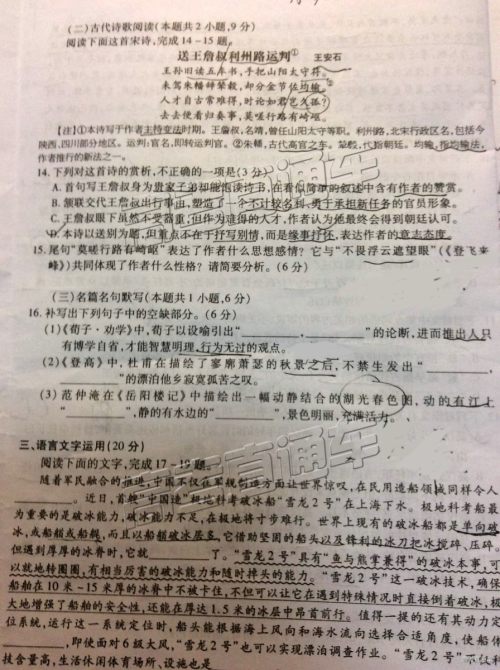 (二)古代诗歌阅读(本题共2小题,9分)
阅读下面这首宋诗,完成14-15题。
送王詹叔利州路运判① 王安石
王孙旧读五车书,手把山阳太守符。
未驾朱轓辞辇毂,却分金节佐均输。
人才自古常难得,时论如君岂久孤?
去去便看归奏事,莫嗟行路有崎岖。
【注】①本诗写于作者主持变法时期。王詹叔,名靖,曾任山阳太守等职。利州路,北宋行政区名,包括今
陕西、四川部分地区。运判:官名,即转运判官。②朱轓,古代高官之车。辇毂,代指朝廷。均输,指均输法,
作者推行的新法之一。
14. 下列对这首诗的赏析,不正确的一项是(3分)
A. 首句写王詹叔身为贵家子弟却能饱读诗书,在看似简单的叙述中含有作者的赞赏。
B. 颔联交代王詹叔出行事由,塑造了一个不计较名利,勇于承担新任务的官员形象。
C. 王詹叔眼下虽然不受器重,但作为难得的人才,作者认为他最终会得到朝廷认可。
D. 本诗以送别为题,但重点不在于抒写别情,而是缘事抒怀,表达作者的意志态度。
15. 尾句“莫嗟行路有崎岖”表达了作者什么思想感情?它与“不畏浮云遮望眼”(《登飞来
峰》)共同体现了作者什么性格?请简要分析。(6分)
(三)名篇名句默写(本题共1小题,6分)
16. 补写出下列句子中的空缺部分。(6分)
(1)《荀子·劝学》中,荀子以设喻引出“________,________”的论断,进而推出人只
有博学自省,才能智慧明理,行为无过的观点。
(2)《登高》中,杜甫在描绘了寥廓萧瑟的秋景之后,不禁生发出“________,
________”的漂泊他乡寂寞孤苦之叹。
(3) 范仲淹在《岳阳楼记》中描绘出一幅动静结合的湖光春色图,动的有江上“
________”,静的有水边的“________”,景色明丽,充满活力。
三、语言文字运用(20分)
阅读下面的文字,完成17-19题。
随着军民融合的推进,中国不仅在军舰制造方面让世界惊叹,在民用造船领域同样令人
________。近日,首艘“中国造”极地科考破冰船“雪龙2号”在上海下水。极地科考船最
为重要的是破冰能力,破冰能力不足,在极地将寸步难行。世界上现有的破冰船都是单向破
冰,或船艏或船艉,而且以船艏破冰居多,它借助坚固的船头以及锋利的冰刀把冰搅碎、压碎。
但遇到厚厚的冰脊时,它就________了。“雪龙2号”具有“鱼与熊掌兼得”的破冰本事,可
以就地转圈圈,有相当厉害的破冰能力和随时掉头的能力。“雪龙2号”这一破冰技术,确保
船舶在10米-15米厚的冰脊中不被卡住,不但可以让它在遇到特殊情况时直接倒着破冰,极
大地增强了船舶的安全性,还能在厚达1.5米的冰层中昂首前行。值得一提的还有其动力定
位系统,运行这一系统定位时,船头能根据海上风向和海水流向选择合适角度,使船舶
________,即使面对6级大风,“雪龙2号”也可以实现漂泊调查作业。“雪龙2号”不仅科
技含量高,生活休闲体育场所、设施也是
直通车
直通车